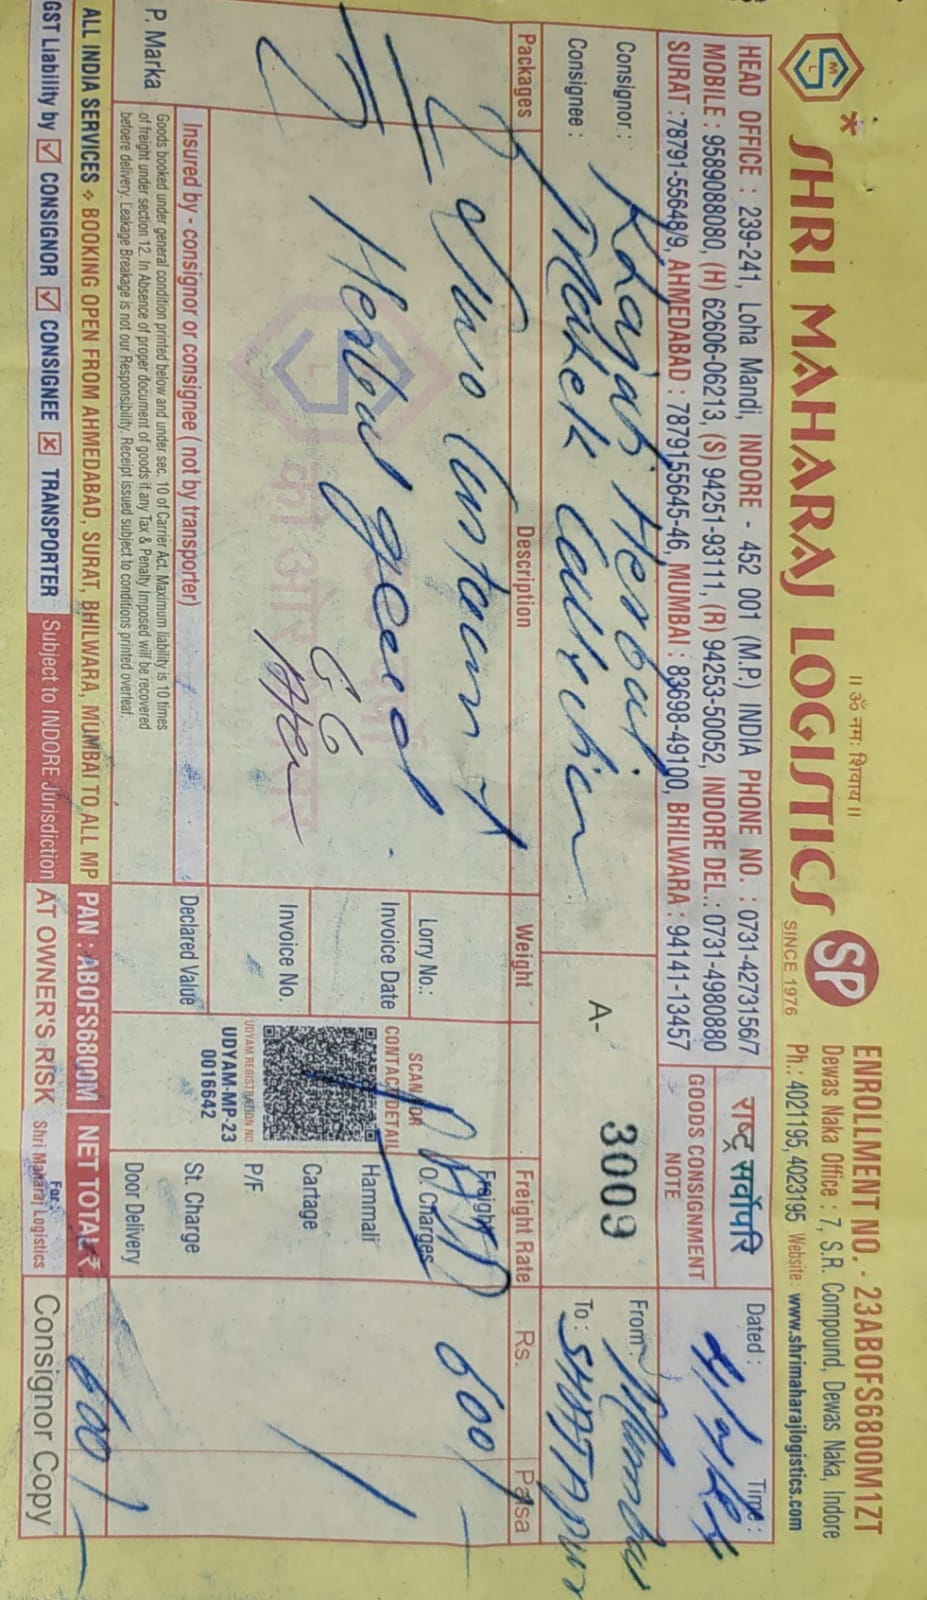 ॥ ॐ नमः शिवाय ॥
SHRI MAHARAJ LOGISTICS
SINCE 1976
SP
ENROLLMENT NO. - 23ABOFS6800M1ZT
Dewas Naka Office : 7, S.R. Compound, Dewas Naka, Indore
Ph.: 4021195, 4023195 Website : www.shrimaharajlogistics.com
HEAD OFFICE : 239-241, Loha Mandi, INDORE - 452 001 (M.P.) INDIA PHONE NO. : 0731-4273156/7
MOBILE : 9589088080, (H) 62606-06213, (S) 94251-93111, (R) 94253-50052, INDORE DEL.: 0731-4980880
SURAT : 78791-55648/9, AHMEDABAD : 7879155645-46, MUMBAI : 83698-49100, BHILWARA : 94141-13457
राष्ट्र सर्वोपरि
GOODS CONSIGNMENT
NOTE
Dated : Time :
Consignor :
Consignee : Mahek Collection
A- 3009
From : Mumbai
To :
Packages Description Weight Freight Rate Rs. Paisa
Lorry No.:
Invoice Date
Invoice No.
Declared Value
SCAN FOR
CONTACT DETAIL
UDYAM REGISTRATION NO.
UDYAM-MP-23
0016642
Freight 600/-
Vo. Charges
Hammali
Cartage
P/F
St. Charge
Door Delivery
P. Marka
Insured by - consignor or consignee ( not by transporter)
Goods booked under general condition printed below and under sec. 10 of Carrier Act. Maximum liability is 10 times
of freight under section 12. In Absence of proper document of goods if any Tax & Penalty Imposed will be recovered
befoere delivery. Leakage Breakage is not our Responsibility. Receipt issued subject to conditions printed overleaf.
ALL INDIA SERVICES ❖ BOOKING OPEN FROM AHMEDABAD, SURAT, BHILWARA, MUMBAI TO ALL MP
PAN : ABOFS6800M NET TOTAL ₹ 600/-
GST Liability by ☑ CONSIGNOR ☑ CONSIGNEE ☒ TRANSPORTER Subject to INDORE Jurisdiction AT OWNER'S RISK
For:
Shri Maharaj Logistics
Consignor Copy